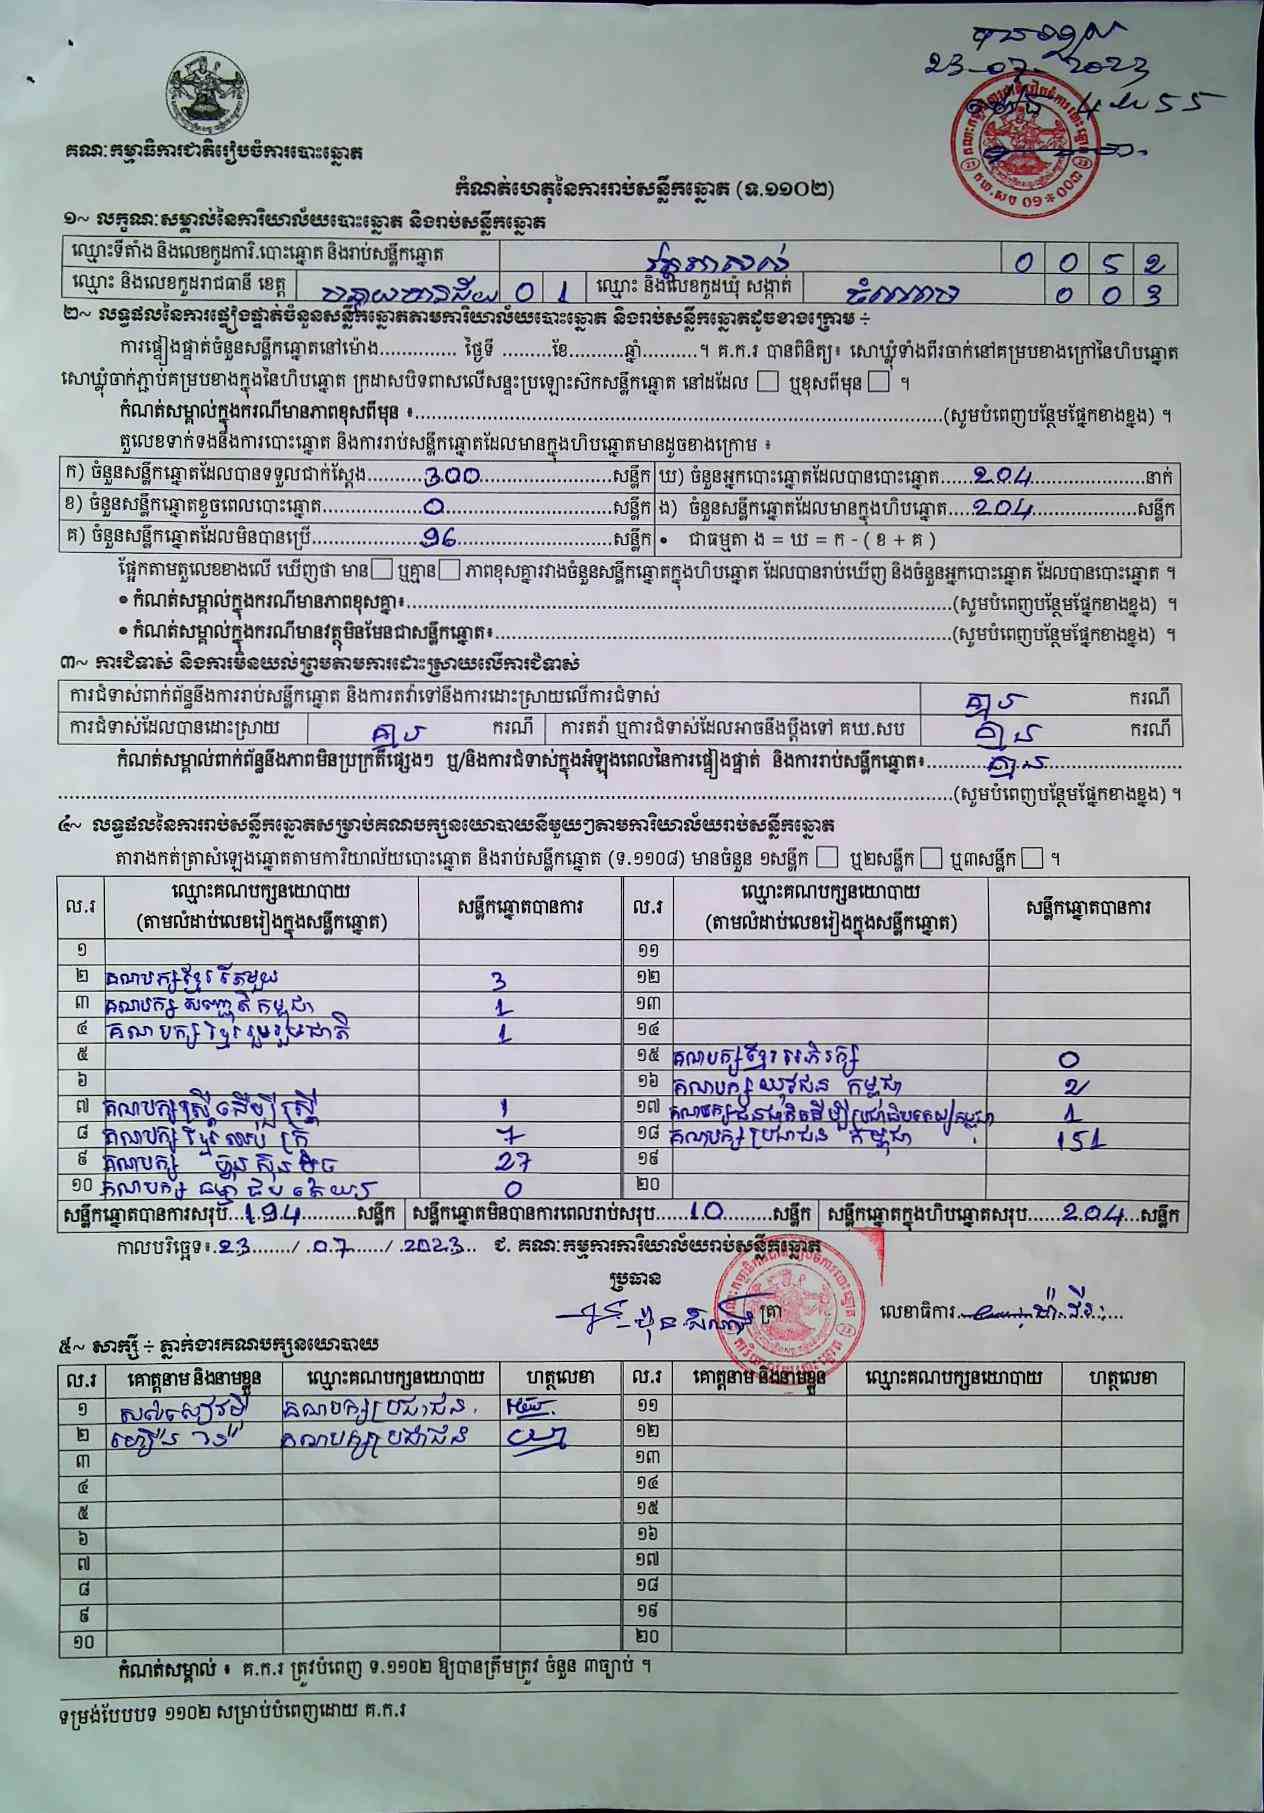 បានទទួល
23-07-2023
ម៉ោង 4 និង 55
គណៈកម្មាធិការជាតិរៀបចំការបោះឆ្នោត
កំណត់ហេតុនៃការរាប់សន្លឹកឆ្នោត (ទ.១១០២)
១~ លក្ខណៈសម្គាល់នៃការិយាល័យបោះឆ្នោត និងរាប់សន្លឹកឆ្នោត
ឈ្មោះទីតាំង និងលេខកូដការិ.បោះឆ្នោត និងរាប់សន្លឹកឆ្នោត 0 0 5 2
ឈ្មោះ និងលេខកូដរាជធានី ខេត្ត បន្ទាយមានជ័យ 0 1 ឈ្មោះ និងលេខកូដឃុំ សង្កាត់ 0 0 3
២~ លទ្ធផលនៃការផ្ទៀងផ្ទាត់ចំនួនសន្លឹកឆ្នោតតាមការិយាល័យបោះឆ្នោត និងរាប់សន្លឹកឆ្នោតដូចខាងក្រោម ÷
ការផ្ទៀងផ្ទាត់ចំនួនសន្លឹកឆ្នោតនៅម៉ោង.............. ថ្ងៃទី .........ខែ..........ឆ្នាំ..........។ គ.ក.រ បានពិនិត្យ៖ សោឃ្លុំទាំងពីរចាក់នៅគម្របខាងក្រៅនៃហិបឆ្នោត
សោឃ្លុំចាក់ភ្ជាប់គម្របខាងក្នុងនៃហិបឆ្នោត ក្រដាសបិទពាសលើសន្ទះប្រឡោះស៊កសន្លឹកឆ្នោត នៅដដែល □ ឬខុសពីមុន □ ។
កំណត់សម្គាល់ក្នុងករណីមានភាពខុសពីមុន ៖..............................(សូមបំពេញបន្ថែមផ្នែកខាងខ្នង) ។
តួលេខទាក់ទងនឹងការបោះឆ្នោត និងការរាប់សន្លឹកឆ្នោតដែលមានក្នុងហិបឆ្នោតមានដូចខាងក្រោម ៖
ក) ចំនួនសន្លឹកឆ្នោតដែលបានទទួលជាក់ស្តែង..........300..........សន្លឹក ឃ) ចំនួនអ្នកបោះឆ្នោតដែលបានបោះឆ្នោត......204..........នាក់
ខ) ចំនួនសន្លឹកឆ្នោតខូចពេលបោះឆ្នោត..........0..........សន្លឹក ង) ចំនួនសន្លឹកឆ្នោតដែលមានក្នុងហិបឆ្នោត.....204..........សន្លឹក
គ) ចំនួនសន្លឹកឆ្នោតដែលមិនបានប្រើ..........96..........សន្លឹក • ជាធម្មតា ង = ឃ = ក - ( ខ + គ )
ផ្អែកតាមតួលេខខាងលើ ឃើញថា មាន□ ឬគ្មាន□ ភាពខុសគ្នារវាងចំនួនសន្លឹកឆ្នោតក្នុងហិបឆ្នោត ដែលបានរាប់ឃើញ និងចំនួនអ្នកបោះឆ្នោត ដែលបានបោះឆ្នោត ។
• កំណត់សម្គាល់ក្នុងករណីមានភាពខុសគ្នា៖..............................(សូមបំពេញបន្ថែមផ្នែកខាងខ្នង) ។
• កំណត់សម្គាល់ក្នុងករណីមានវត្ថុមិនមែនជាសន្លឹកឆ្នោត៖..............................(សូមបំពេញបន្ថែមផ្នែកខាងខ្នង) ។
៣~ ការជំទាស់ និងការមិនយល់ព្រមតាមការដោះស្រាយលើការជំទាស់
ការជំទាស់ពាក់ព័ន្ធនឹងការរាប់សន្លឹកឆ្នោត និងការតវ៉ាទៅនឹងការដោះស្រាយលើការជំទាស់ គ្មាន ករណី
ការជំទាស់ដែលបានដោះស្រាយ គ្មាន ករណី ការតវ៉ា ឬការជំទាស់ដែលអាចនឹងប្តឹងទៅ គឃ.សប គ្មាន ករណី
កំណត់សម្គាល់ពាក់ព័ន្ធនឹងភាពមិនប្រក្រតីផ្សេងៗ ឬ/និងការជំទាស់ក្នុងអំឡុងពេលនៃការផ្ទៀងផ្ទាត់ និងការរាប់សន្លឹកឆ្នោត៖..........គ្មាន..........
..............................(សូមបំពេញបន្ថែមផ្នែកខាងខ្នង) ។
៤~ លទ្ធផលនៃការរាប់សន្លឹកឆ្នោតសម្រាប់គណបក្សនយោបាយនីមួយៗតាមការិយាល័យរាប់សន្លឹកឆ្នោត
តារាងកត់ត្រាសំឡេងឆ្នោតតាមការិយាល័យបោះឆ្នោត និងរាប់សន្លឹកឆ្នោត (ទ.១១០៨) មានចំនួន ១សន្លឹក □ ឬ២សន្លឹក □ ឬ៣សន្លឹក □ ។
ល.រ ឈ្មោះគណបក្សនយោបាយ (តាមលំដាប់លេខរៀងក្នុងសន្លឹកឆ្នោត) សន្លឹកឆ្នោតបានការ ល.រ ឈ្មោះគណបក្សនយោបាយ (តាមលំដាប់លេខរៀងក្នុងសន្លឹកឆ្នោត) សន្លឹកឆ្នោតបានការ
១ ១១
២ គណបក្សខ្មែរតែមួយ 3 ១២
៣ គណបក្ស សញ្ជាតិកម្ពុជា 1 ១៣
៤ គណបក្សខ្មែររួបរួមជាតិ 1 ១៤
៥ ១៥ គណបក្សខ្មែរអភិរក្ស 0
៦ ១៦ គណបក្សយុវជនកម្ពុជា 2
៧ គណបក្សស្រ្តីដើម្បីស្រ្តី 1 ១៧ 1
៨ 7 ១៨ គណបក្សប្រជាជនកម្ពុជា 151
៩ គណបក្ស ហ្វ៊ុនស៊ិនប៉ិច 27 ១៩
១០ គណបក្ស ធម្មាធិបតេយ្យ 0 ២០
សន្លឹកឆ្នោតបានការសរុប...194..........សន្លឹក សន្លឹកឆ្នោតមិនបានការពេលរាប់សរុប......10........សន្លឹក សន្លឹកឆ្នោតក្នុងហិបឆ្នោតសរុប......204...សន្លឹក
កាលបរិច្ឆេទ៖.23......./.07....../.2023.. ជ. គណៈកម្មការការិយាល័យរាប់សន្លឹកឆ្នោត
ប្រធាន
ត្រា លេខាធិការ
៥~ សាក្សី ÷ ភ្នាក់ងារគណបក្សនយោបាយ
ល.រ គោត្តនាម និងនាមខ្លួន ឈ្មោះគណបក្សនយោបាយ ហត្ថលេខា ល.រ គោត្តនាម និងនាមខ្លួន ឈ្មោះគណបក្សនយោបាយ ហត្ថលេខា
១ គណបក្សប្រជាជន ១១
២ គណបក្សប្រជាជន ១២
៣ ១៣
៤ ១៤
៥ ១៥
៦ ១៦
៧ ១៧
៨ ១៨
៩ ១៩
១០ ២០
កំណត់សម្គាល់ ៖ គ.ក.រ ត្រូវបំពេញ ទ.១១០២ ឱ្យបានត្រឹមត្រូវ ចំនួន ៣ច្បាប់ ។
ទម្រង់បែបបទ ១១០២ សម្រាប់បំពេញដោយ គ.ក.រ